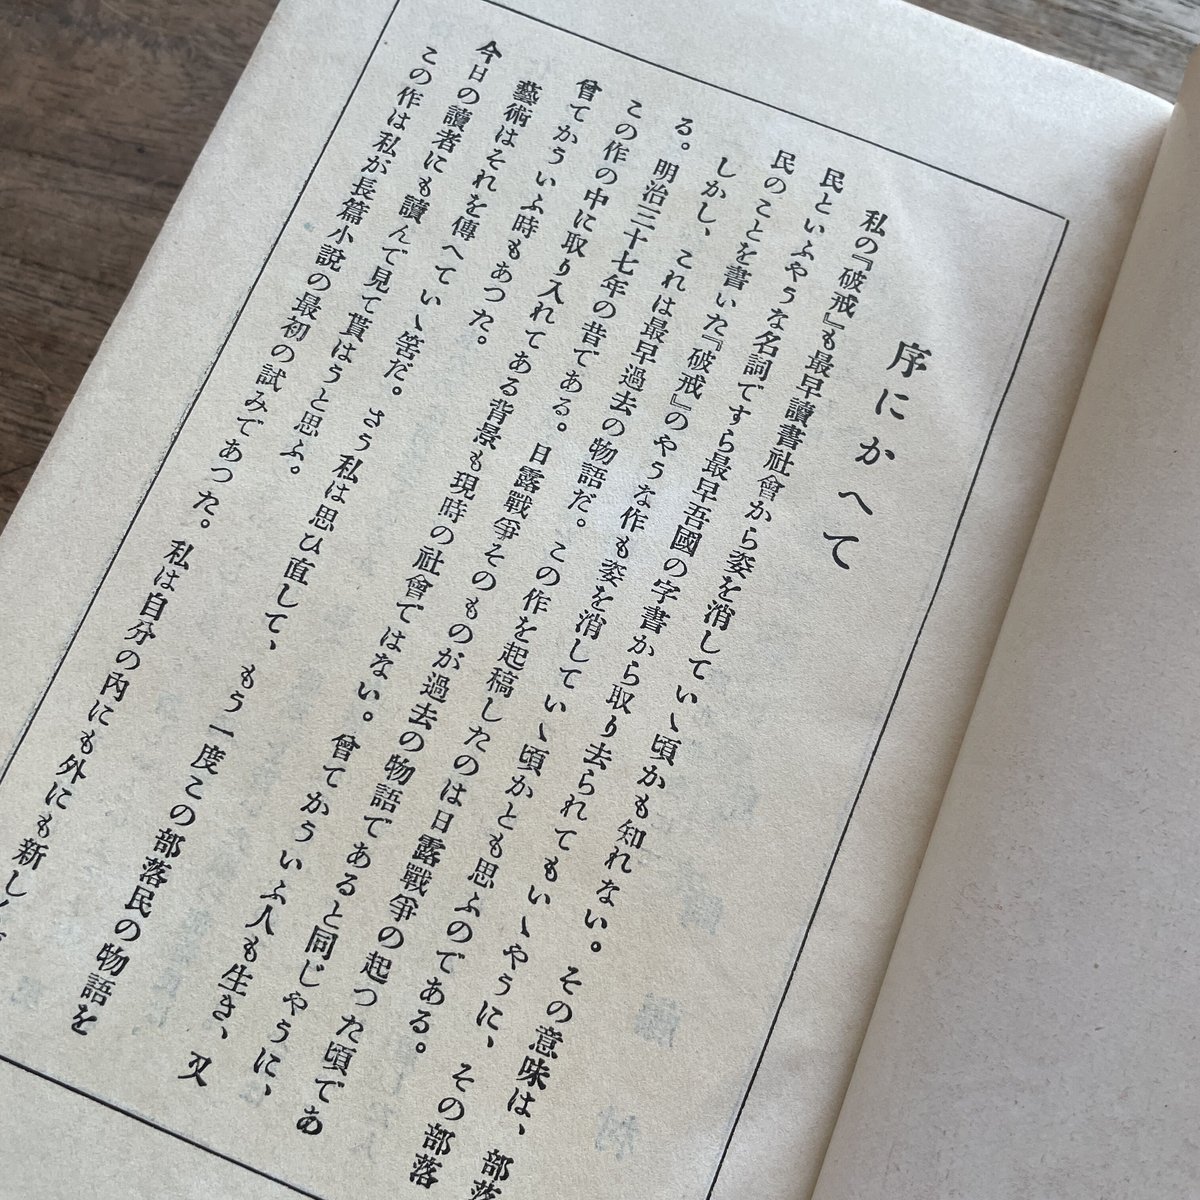 序にかへて
私の『破戒』も最早讀書社會から姿を消していゝ頃かも知れない。その意味は、部落
民といふやうな名詞ですら最早吾國の字書から取り去られてもいゝやうに、その部落
民のことを書いた『破戒』のやうな作も姿を消していゝ頃かとも思ふのである。
しかし、これは最早過去の物語だ。この作を起稿したのは日露戰爭の起つた頃であ
る。明治三十七年の昔である。日露戰爭そのものが過去の物語であると同じやうに、
この作の中に取り入れてある背景も現時の社會ではない。曾てかういふ人も生き、又
曾てかういふ時もあつた。
藝術はそれを傳へていゝ筈だ。さう私は思ひ直して、もう一度この部落民の物語を
今日の讀者にも讀んで見て貰はうと思ふ。
この作は私が長篇小說の最初の試みであつた。私は自分の內にも外にも新し